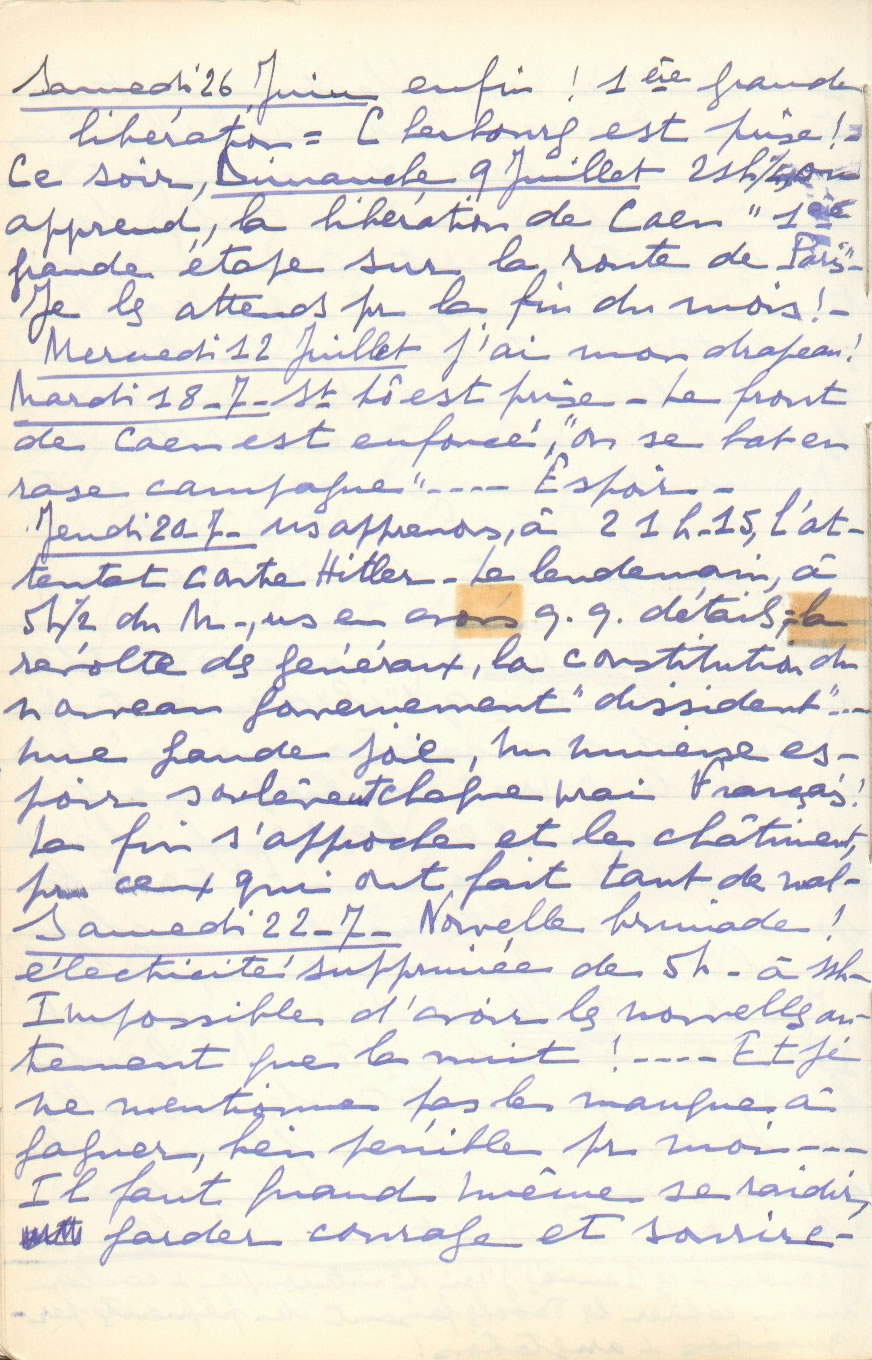 Samedi 26 Juin enfin ! 1ère grande
libération = Cherbourg est prise ! -
Ce soir, Dimanche 9 Juillet 21h/4, on
apprend, la libération de Caen " 1ère
grande étape sur la route de Paris" -
Je les attends pr la fin du mois ! -
Mercredi 12 Juillet j'ai mon drapeau !
Mardi 18-7- St Lô est prise - Le front
de Caen est enfoncé, "on se bat en
rase campagne" ---- Espoir -
Jeudi 20-7- ns apprenons, à 21h-15, l'at-
tentat contre Hitler - Le lendemain, à
5h/2 du M-, ns en avons q.q. détails ; la
révolte des généraux, la constitution du
nouveau gouvernement "dissident" ...
une grande joie, un immense es-
poir soulèvent chaque vrai Français !
La fin s'approche et le châtiment,
pr ceux qui ont fait tant de mal -
Samedi 22-7- Nouvelle brimade !
électricité supprimée de 5h - à
Impossible d'avoir les nouvelles au-
trement que la nuit ! ---- Et je
ne mentionne pas le manque à
gagner, bien pénible pr moi ---
Il faut quand même se raidir,
garder courage et sourire -